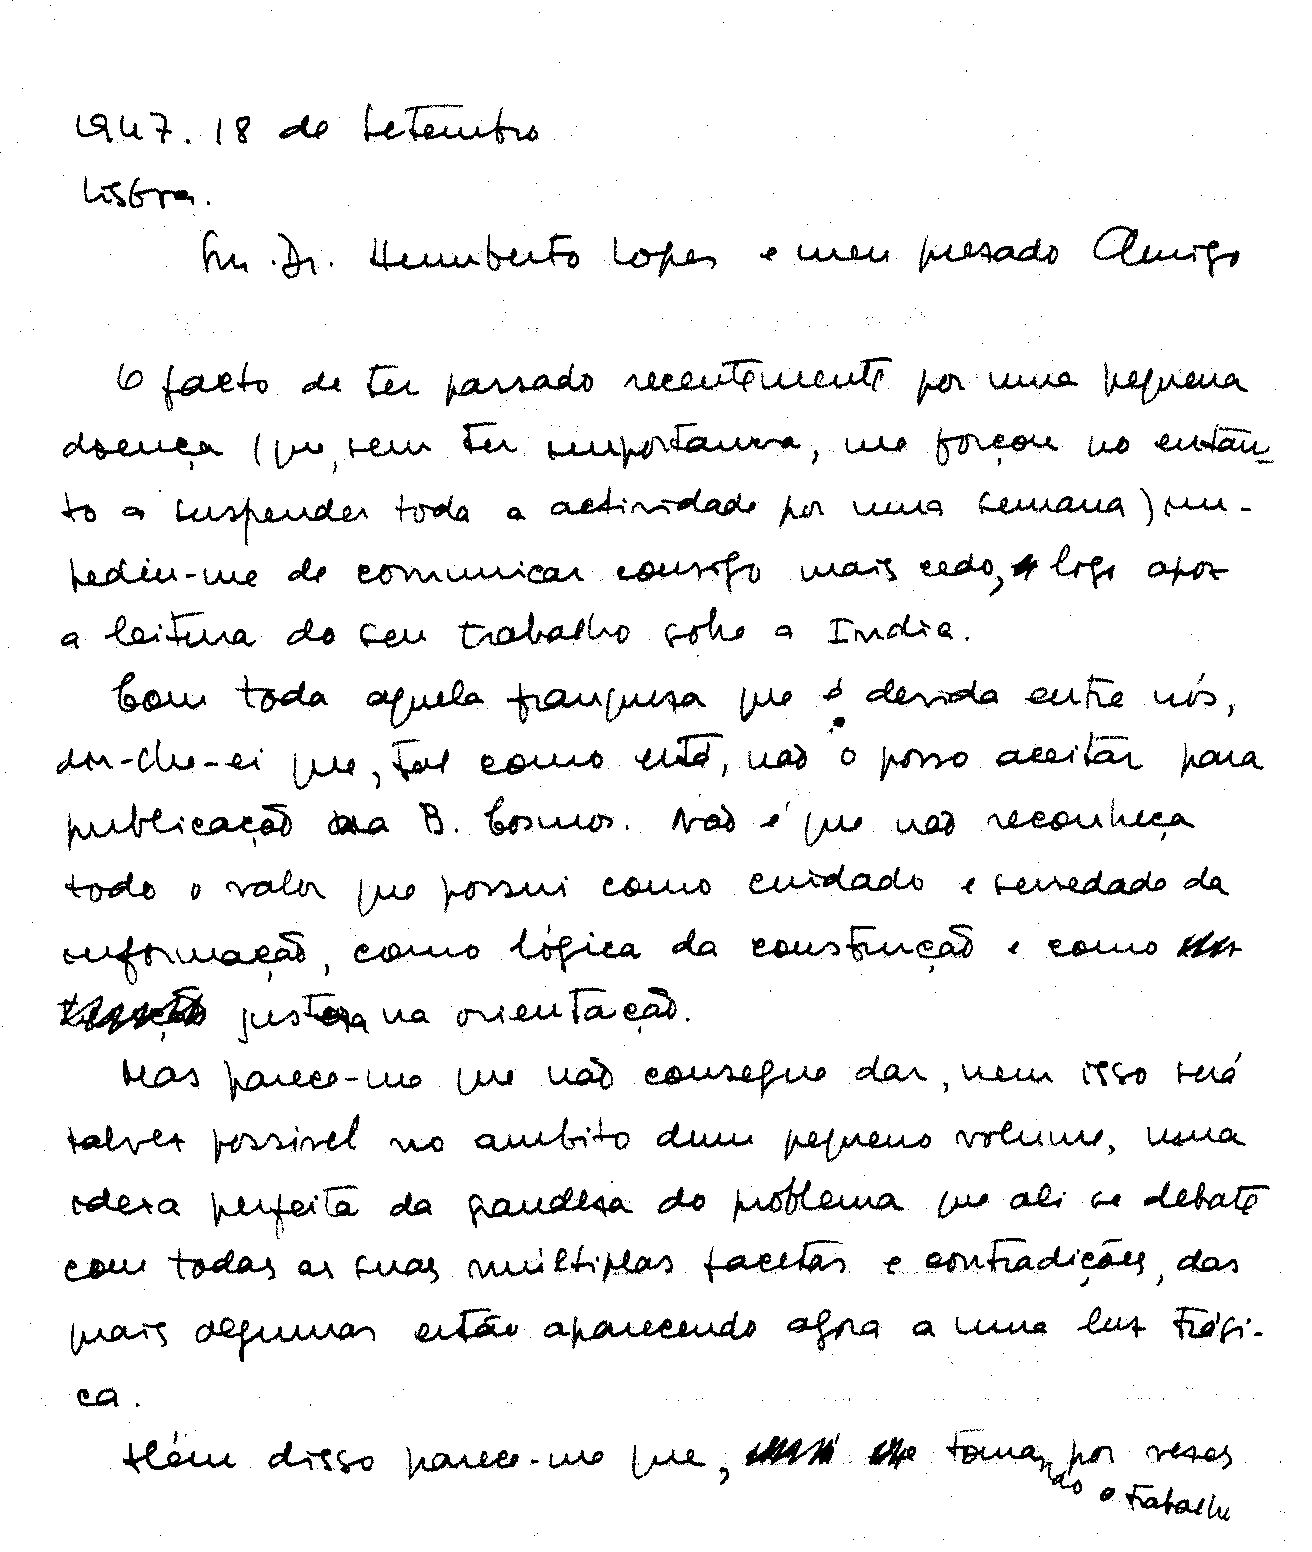 1947. 18 de Setembro
Lisboa.
Snr. Dr. Humberto Lopes e meu presado Amigo
O facto de ter passado recentemente por uma pequena
doença (que, sem ter importancia, me forçou no entan-
to a suspender toda a actividade por uma semana) im-
pediu-me de comunicar consigo mais cedo, logo apoz
a leitura do seu trabalho sobre a India.
Com toda aquela franqueza que é devida entre nós,
dir-lhe-ei que, tal como está, não o posso aceitar para
publicação na B. Cosmos. Não é que não reconheça
todo o valor que possui como cuidado e seriedade da
informação, como lógica da construção e como
justeza na orientação.
Mas parece-me que não consegue dar, nem isso será
talvez possivel no ambito dum pequeno volume, uma
ideia perfeita da grandeza do problema que ali se debate
com todas as suas múltiplas facetas e contradições, das
quais algumas estão aparecendo agora a uma luz trági-
ca.
Além disso parece-me que, tomando por vezes
o trabalho